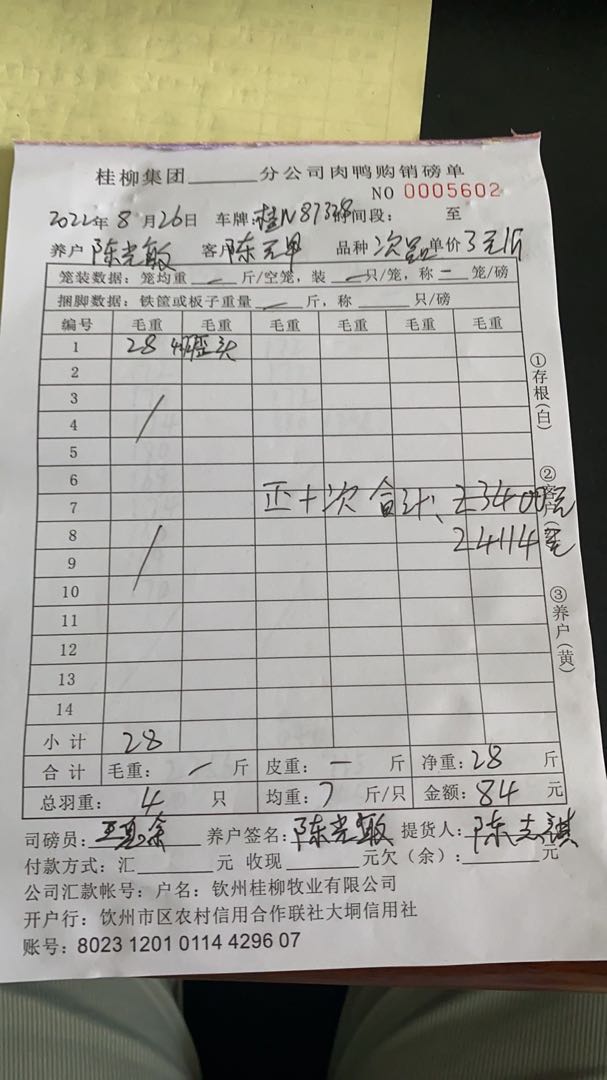 桂柳集团______分公司肉鸭购销磅单
NO 0005602
2022年8月26日 车牌:桂N87328时间段: 至
养户 陈光敏 客户 陈 品种 次品 单价 3元/斤
笼装数据:笼均重 — 斤/空笼,装 — 只/笼,称 — 笼/磅
捆脚数据:铁筐或板子重量 — 斤,称____只/磅
编号 毛重 毛重 毛重 毛重 毛重 毛重
1 28 4 头
2
3
4
5
6
7 正十次合计、23400
8 24114
9
10
11
12
13
14
小计 28
合计 毛重: — 斤 皮重: — 斤 净重: 28 斤
总羽重: 4 只 均重: 7 斤/只 金额: 84 元
司磅员: 养户签名: 陈光敏 提货人: 陈志祺
付款方式:汇______元 收现______元欠(余):______元
公司汇款帐号:户名:钦州桂柳牧业有限公司
开户行:钦州市区农村信用合作联社大垌信用社
账号:8023 1201 0114 4296 07
①存根(白)
②客户(
③养户(黄)